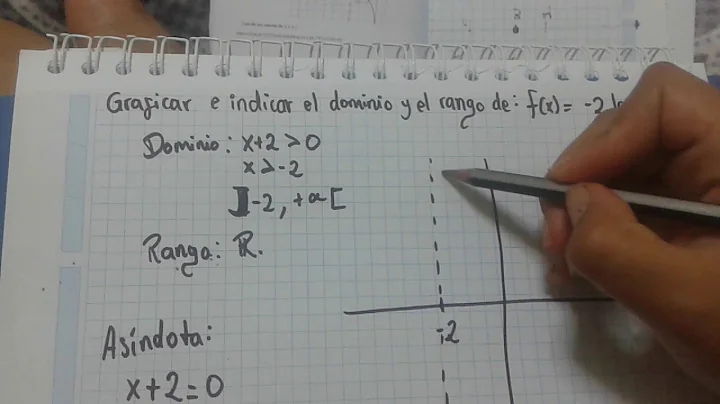 Graficar e indicar el dominio y el rango de: f(x) = -2
Dominio: x+2 > 0
x > -2
]-2, +∝[
Rango: ℝ.
-2
Asíndota:
x+2=0